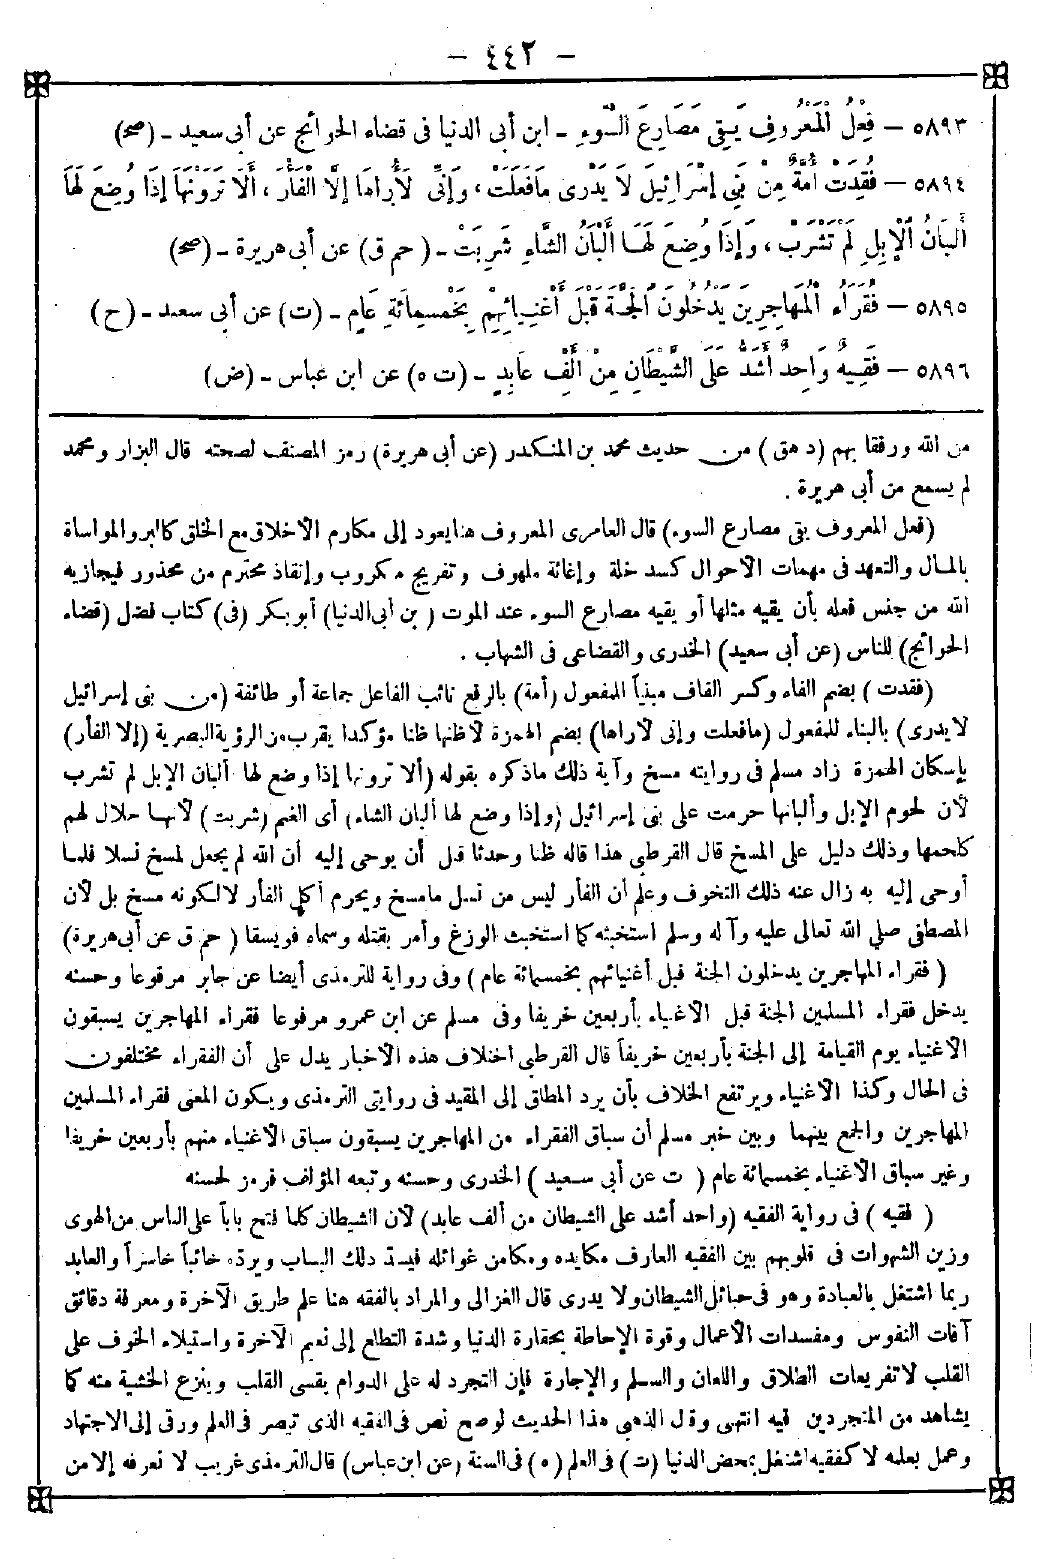 - ٤٤٢ -
٥٨٩٣ - فِعْلُ الْمَعْرُوفِ يَقِي مَصَارِعَ السُّوءِ - ابن أبى الدنيا فى قضاء الحوائج عن أبى سعيد - (صح)
٥٨٩٤ - فُقِدَتْ أُمَّةٌ مِنْ بَنِي إِسْرَائِيلَ لَا يُدْرَى مَا فَعَلَتْ، وَإِنِّي لَأُرَاهَا إِلَّا الْفَأْرَ، أَلَا تَرَوْنَهَا إِذَا وُضِعَ لَهَا
أَلْبَانُ الْإِبِلِ لَمْ تَشْرَبْ، وَإِذَا وُضِعَ لَهَا أَلْبَانُ الشَّاءِ شَرِبَتْ - (حم ق) عن أبى هريرة - (صح)
٥٨٩٥ - فُقَرَاءُ الْمُهَاجِرِينَ يَدْخُلُونَ الْجَنَّةَ قَبْلَ أَغْنِيَائِهِمْ بِخَمْسِمِائَةِ عَامٍ - (ت) عن أبى سعيد - (ح)
٥٨٩٦ - فَقِيهٌ وَاحِدٌ أَشَدُّ عَلَى الشَّيْطَانِ مِنْ أَلْفِ عَابِدٍ - (ت ه) عن ابن عباس - (ض)
من الله ورفقا بهم (د هق) من حديث محمد بن المنكدر (عن أبى هريرة) رمز المصنف لصحته قال البزار ومحمد
لم يسمع من أبى هريرة .
(فعل المعروف يقى مصارع السوء) قال العامرى المعروف هنا يعود إلى مكارم الأخلاق مع الخلق كالبر والمواساة
بالمال والتعهد فى مهمات الأحوال كسد خلة وإغاثة ملهوف وتفريج مكروب وإنقاذ محترم من محذور فيجازيه
الله من جنس فعله بأن يقيه مثلها أو يقيه مصارع السوء عند الموت (بن أبى الدنيا) أبو بكر (فى) كتاب فضل (قضاء
الحوائج) للناس (عن أبى سعيد) الخدرى والقضاعى فى الشهاب .
(فقدت) بضم الفاء وكسر القاف مبنياً للمفعول (أمة) بالرفع نائب الفاعل جماعة أو طائفة (من بنى إسرائيل
لا يدرى) بالبناء للمفعول (ما فعلت وإنى لأراها) بضم الهمزة لأظنها ظنا مؤكدا يقرب من الرؤية البصرية (إلا الفأر)
بإسكان الهمزة زاد مسلم فى روايته مسخ وآية ذلك ما ذكره بقوله (ألا ترونها إذا وضع لها ألبان الإبل لم تشرب
لأن لحوم الإبل وألبانها حرمت على بنى إسرائيل (وإذا وضع لها ألبان الشاء) أى الغنم (شربت) لأنها حلال لهم
كلحمها وذلك دليل على المسخ قال القرطبى هذا قاله ظنا وحدثا قبل أن يوحى إليه أن الله لم يجعل لمسخ نسلا فلما
أوحى إليه به زال عنه ذلك التخوف وعلم أن الفأر ليس من نسل ما مسخ ويحرم أكل الفأر لا لكونه مسخ بل لأن
المصطفى صلى الله تعالى عليه وآله وسلم استخبثه كما استخبث الوزغ وأمر بقتله وسماه فويسقا (حم ق عن أبى هريرة)
(فقراء المهاجرين يدخلون الجنة قبل أغنيائهم بخمسمائة عام) وفى رواية للترمذى أيضا عن جابر مرفوعا وحسنه
يدخل فقراء المسلمين الجنة قبل الأغنياء بأربعين خريفا وفى مسلم عن ابن عمرو مرفوعا فقراء المهاجرين يسبقون
الأغنياء يوم القيامة إلى الجنة بأربعين خريفاً قال القرطبى اختلاف هذه الأخبار يدل على أن الفقراء مختلفون
فى الحال وكذا الأغنياء ويرتفع الخلاف بأن يرد المطلق إلى المقيد فى روايتى الترمذى ويكون المعنى فقراء المسلمين
المهاجرين والجمع بينهما وبين خبر مسلم أن سباق الفقراء من المهاجرين يسبقون سباق الأغنياء منهم بأربعين خريفا
وغير سباق الأغنياء بخمسمائة عام (ت عن أبى سعيد) الخدرى وحسنه وتبعه المؤلف فرمز لحسنه
(فقيه) فى رواية الفقيه (واحد أشد على الشيطان من ألف عابد) لأن الشيطان كلما فتح باباً على الناس من الهوى
وزين الشهوات فى قلوبهم بين الفقيه العارف مكايده ومكامن غوائله فيسد ذلك الباب ويرده خائباً خاسراً والعابد
ربما اشتغل بالعبادة وهو فى حبائل الشيطان ولا يدرى قال الغزالى والمراد بالفقه هنا علم طريق الآخرة ومعرفة دقائق
آفات النفوس ومفسدات الأعمال وقوة الإحاطة بحقارة الدنيا وشدة التطلع إلى نعيم الآخرة واستيلاء الخوف على
القلب لا تفريعات الطلاق واللعان والسلم والإجارة فإن التجرد له على الدوام يقسى القلب وينزع الخشية منه كما
يشاهد من المتجردين فيه انتهى وقال الذهبى هذا الحديث لو صح نص فى الفقيه الذى تبصر فى العلم ورقى إلى الاجتهاد
وعمل بعلمه لا كفقيه اشتغل بمحض الدنيا (ت) فى العلم (ه) فى السنة (عن ابن عباس) قال الترمذى غريب لا نعرفه إلا من